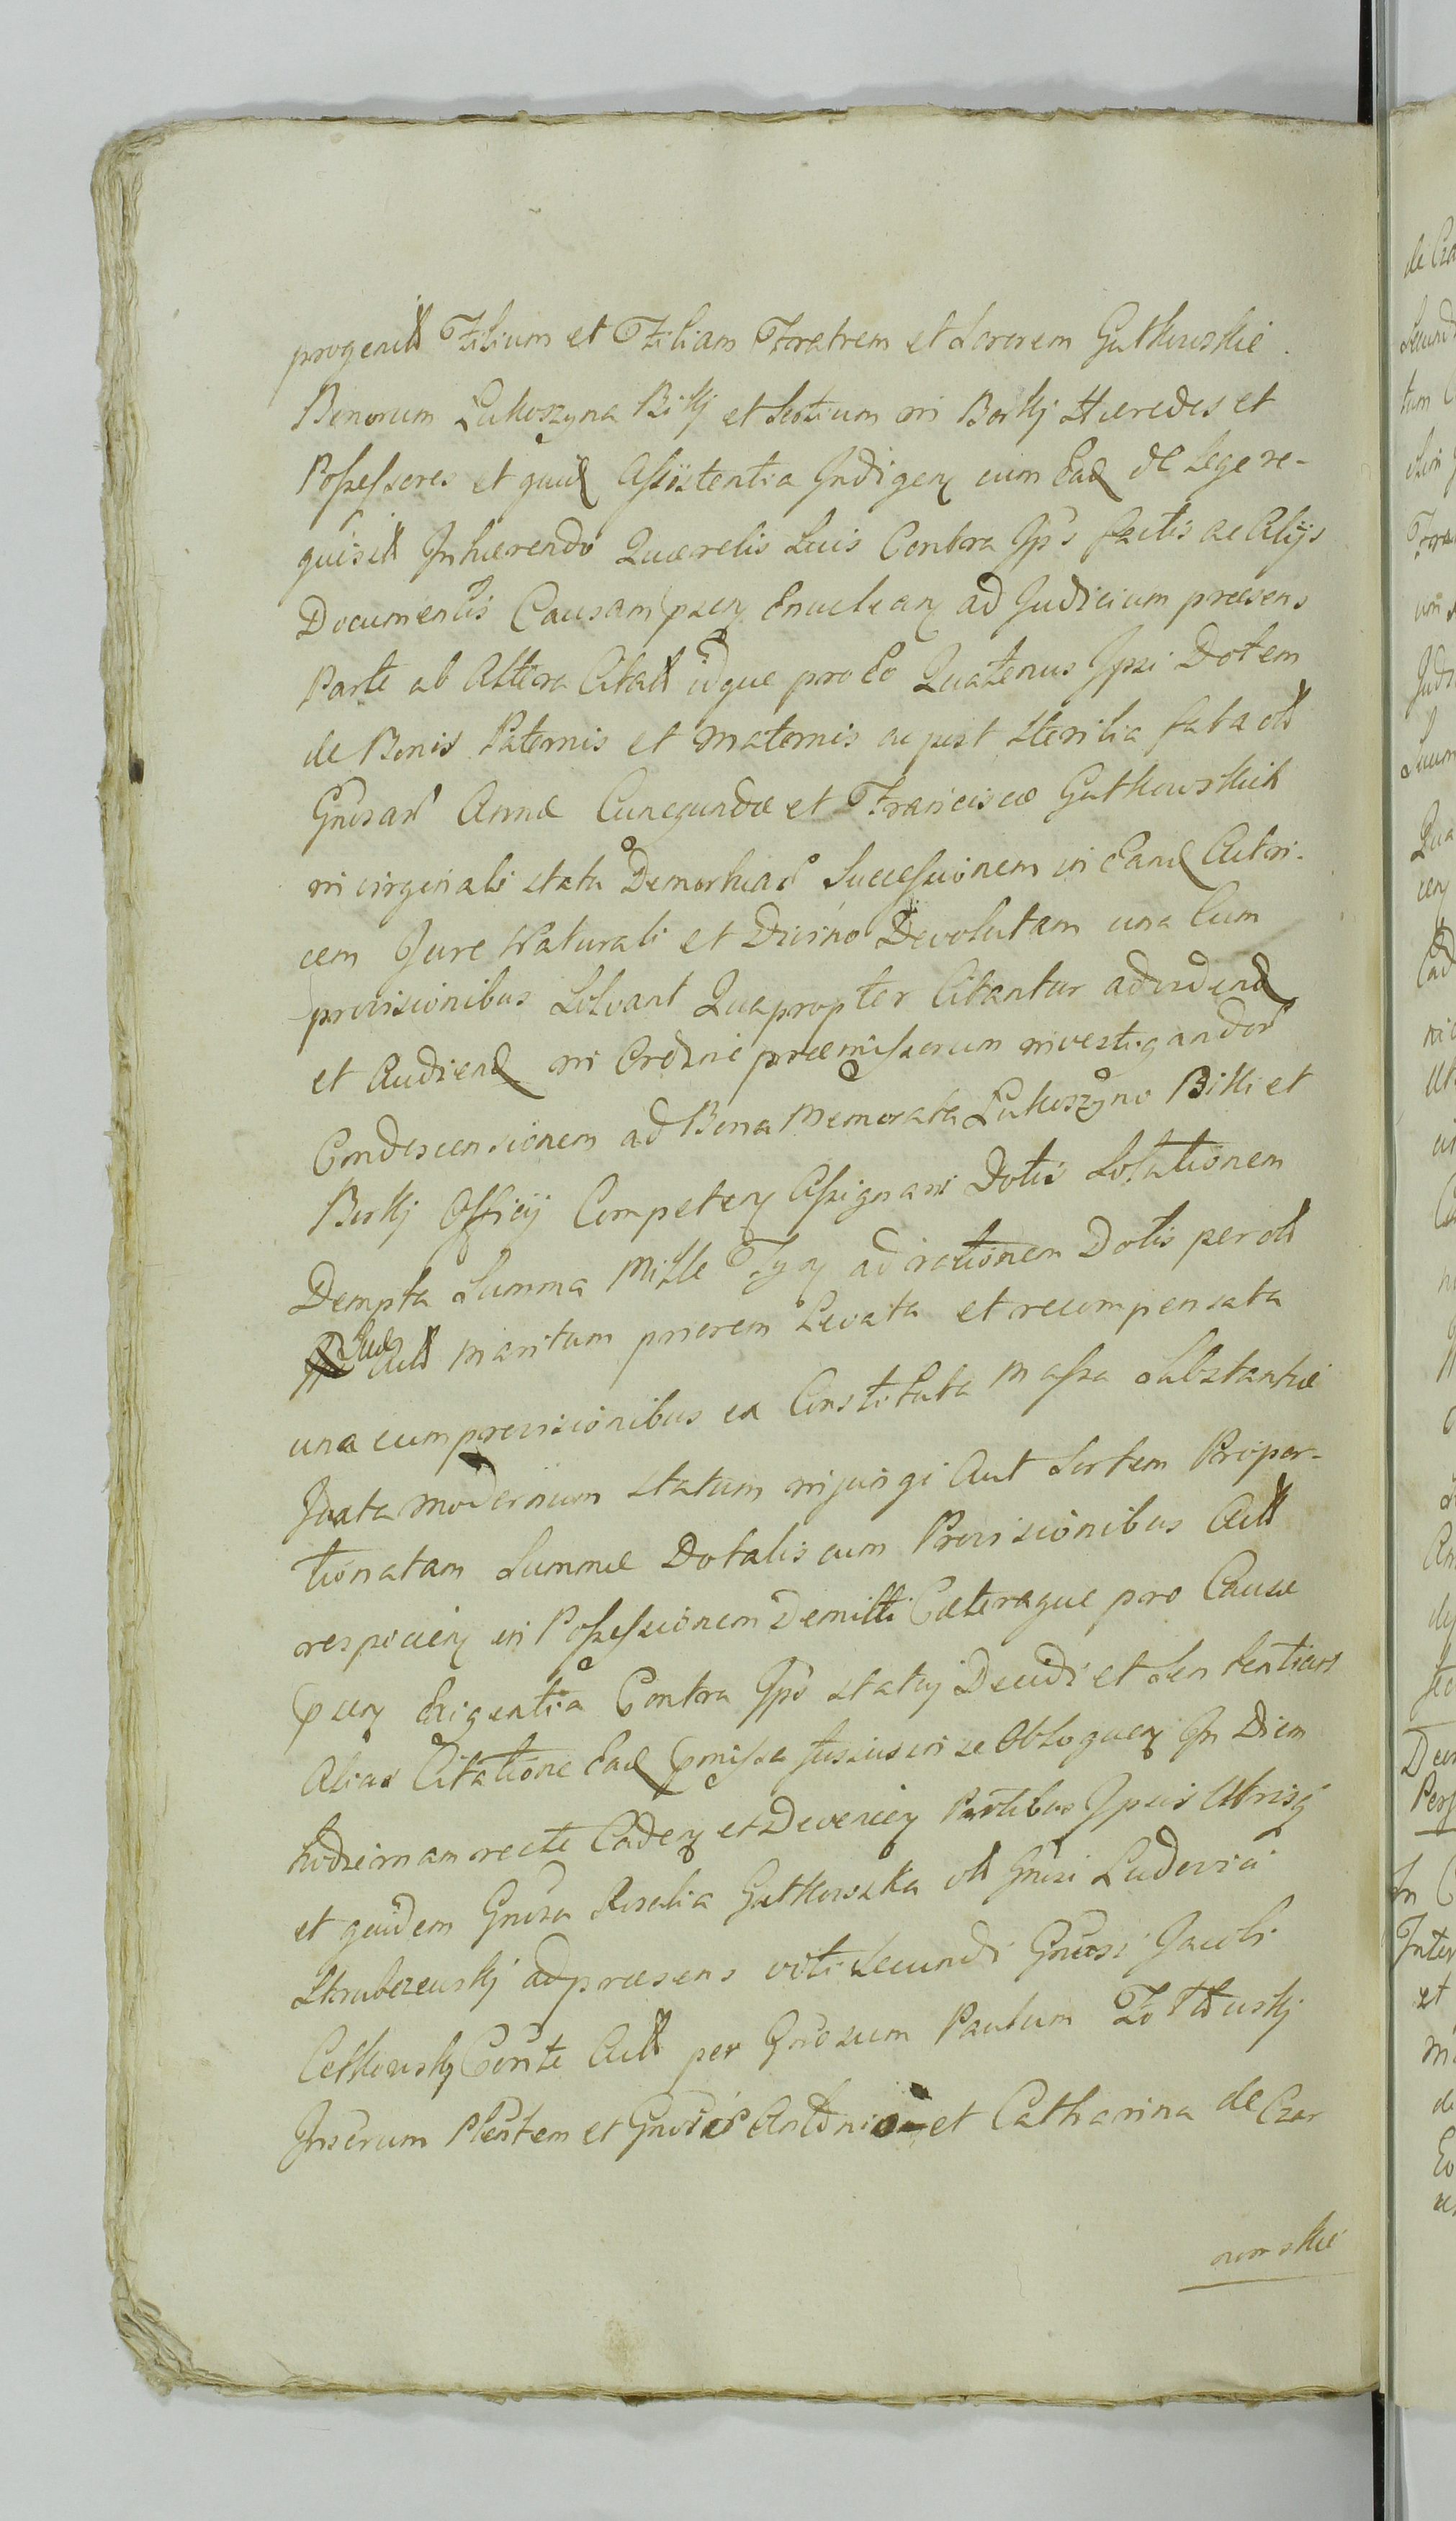 progenit Filium et Filiam Fratrem et Sororem Gutkowskie
Bonorum Lukoszyna Bikj et Seotium in Borkj Hæredes et
Possessores et quid Assistentia Indigen cum Ead de Lege re-
quisit Inhærendo Quærelis Suis Contra Ips factis ac Alijs
Documentis Causam psen Enuclean ad Judicium præsens
Parte ab Altera Citatt idque pro Eo Quatenus Ipsi Dotem
de Bonis Paternis et Maternis ac post Sterilia fata olt
Gnsar Annæ Cunegundæ et Franciscæ Gutkowskich
in virginali statu Demortuar Successionem in Eand Actri-
cem Jure Naturali et Divino Devolutam una Cum
provisionibus Solvant Quapropter Citantur ad vidend
et Audiend in Ordine præmissorum investigandor
Condescensionem ad Bona Memorata Lukoszyno Bikki et
Borkj Officij Competen Assignari Dotis Solutionem
Dempta Summa Mille Tyn ad rationem Dotis per olt
Suæ Actt maritum priorem Levata et recompensata
una cum provisionibus ex Constituta massa Substantiæ
Juxta modernum statum injungi Aut Sortem Propor-
tionatam Summæ Dotalis cum Provisionibus Actt
respicien in Possessionem Demitti Cæteraque pro Causæ
psen Exigentia Contra Ips statuj Decidi et Sententiari
Alias Citatione Ead pmissa fusius in se Obloquen In Diem
hodiernam recte Caden et Devenien Partibus Ipsis Utrisq
et quidem Gnosa Rosalia Gutkowska olt Gnosi Ludovici
Skrubezewskj ad præsens voti Secundi Gnosi Jacobi
Cetkowskj Conte Actt per Gnosum Paulum Zottowskj
Juserum Plentem et Gnosis Antonio et Catharina de Czar
nomskie